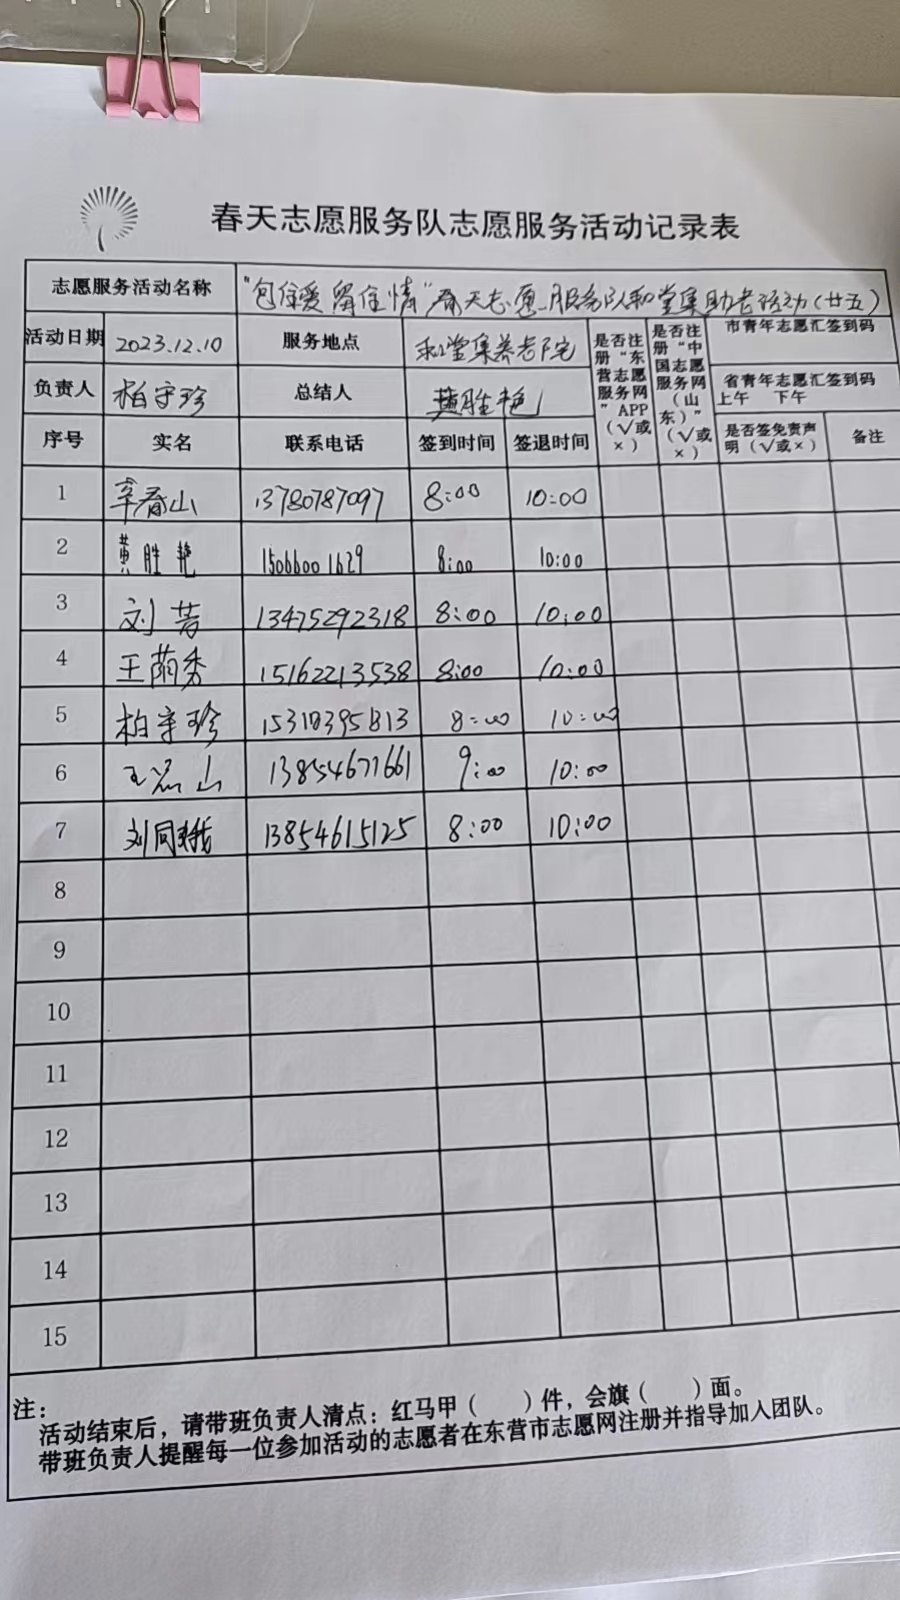 春天志愿服务队志愿服务活动记录表
志愿服务活动名称 "包住爱 留住情"春天志愿服务队和堂集助老活动(廿五)
活动日期 2023.12.10 服务地点 和堂集养老院 是否注册"东营志愿服务网"APP(√或×) 是否注册"中国志愿服务网(山东)"(√或×) 市青年志愿汇签到码
负责人 柏守珍 总结人 黄胜艳 省青年志愿汇签到码 上午 下午
序号 实名 联系电话 签到时间 签退时间 是否签免责声明(√或×) 备注
1 辛春山 13780787097 8:00 10:00
2 黄胜艳 15066001629 8:00 10:00
3 刘芳 13475292318 8:00 10:00
4 王荫秀 15162213538 8:00 10:00
5 柏守珍 15310395813 8:00 10:00
6 13854671661 9:00 10:00
7 刘同娥 13854615125 8:00 10:00
8
9
10
11
12
13
14
15
注:
活动结束后,请带班负责人清点:红马甲( )件,会旗( )面。
带班负责人提醒每一位参加活动的志愿者在东营市志愿网注册并指导加入团队。